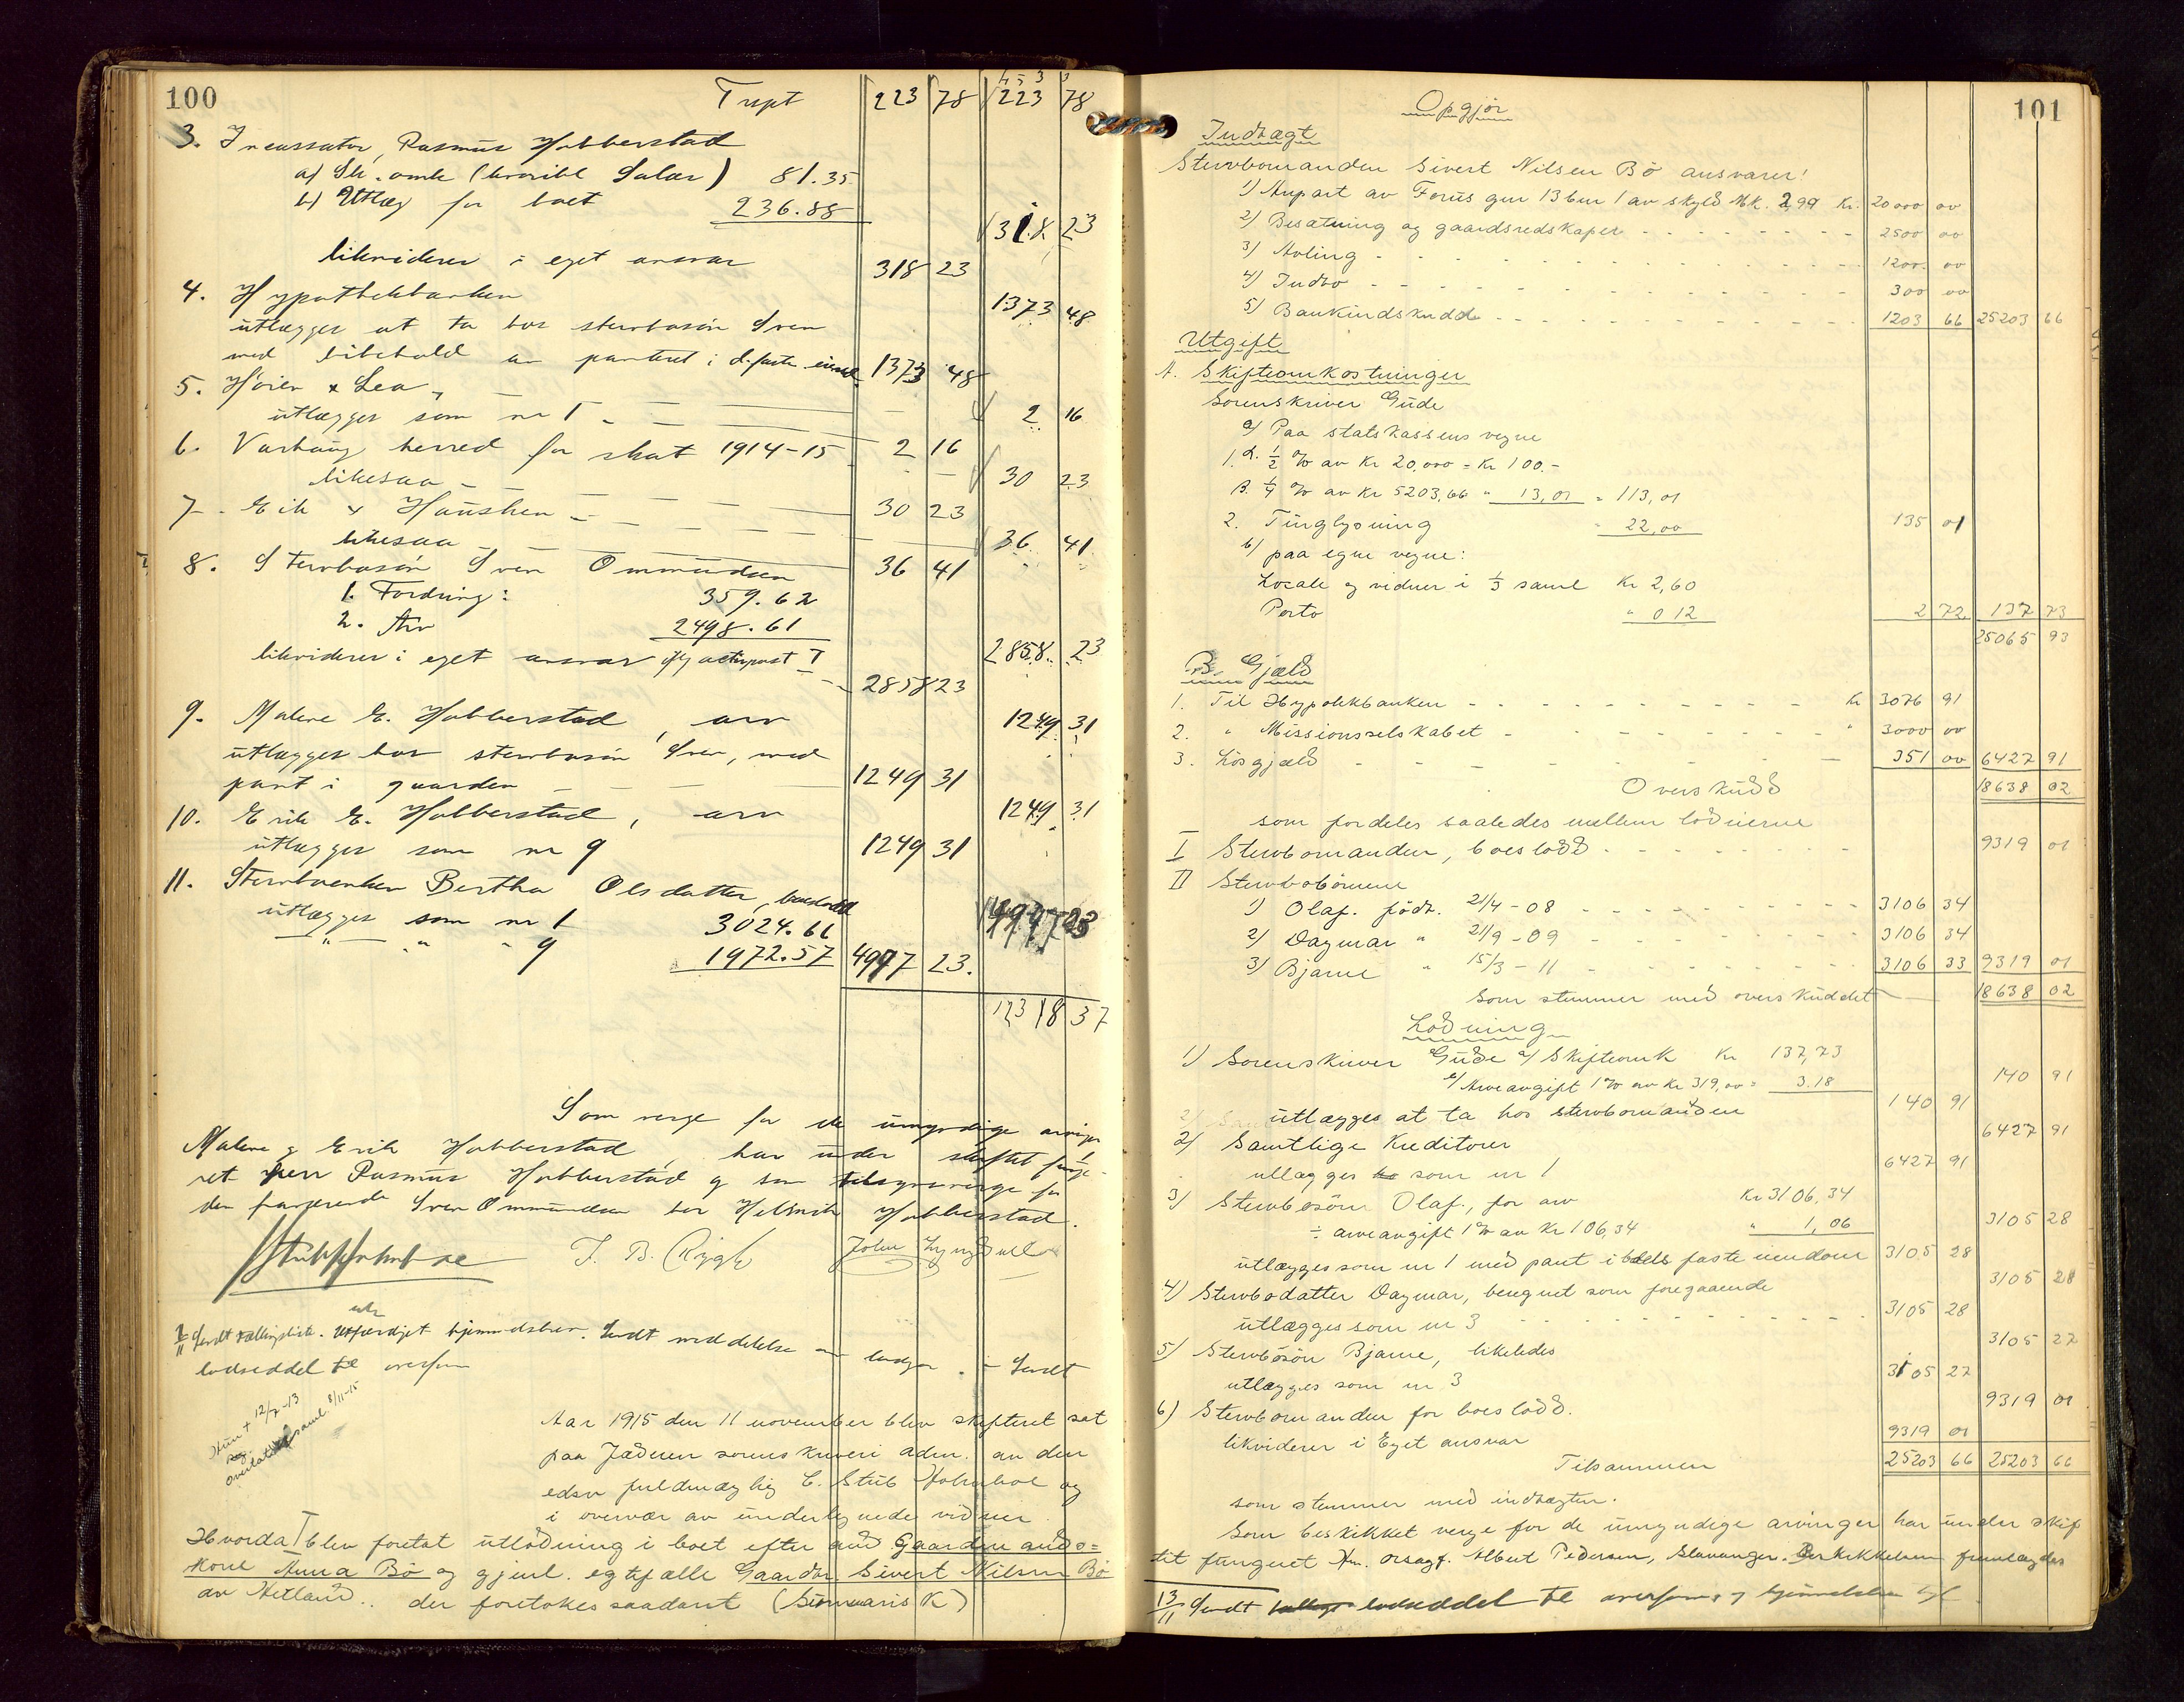 100
Trspt 223 78 223 78
3. Incassator, Rasmus Hobberstad
a) Sk. omk (hvoribl Salær) 81.35
b) Utlæg for boet 236.88
318 23
likviderer i eget ansvar 318 23
4. Hypothekbanken 1373 48
utlægges at ta hos stervbosön Sven
med bibehold av panteret i d. faste eiend. 1373 48
5. Höien & Lea 2 16
utlægges som nr 1
6. Varhaug herred for skat 1914-15 2 16
likesaa 30 23
7. Eik & Hausken 30 23
likesaa 36 41
8. Stervbosön Sven Ommundsen 36 41
1. Fordring: 359.62
2. Arv 2498.61
2858 23
likviderer i eget ansvar ifg activpost I
2858 23
9. Malene E. Hobberstad, arv 1249 31
utlægges hos stervbosön Sven, med
pant i gaarden 1249 31
10. Erik E. Hobberstad, arv 1249 31
utlægges som nr 9 1249 31
11. Stervboenken Bertha Olsdatter, boeslodd
utlægges som nr 1 3024.66 4997 23
" " " 9 1972.57 4997 23.
12318 37
Som verge for de umyndige arvinger
Malene og Erik Hobberstad, har under skiftet funge-
ret herr Rasmus Hobberstad og som tilsynsverge for
den fraværende Sven Ommundsen hr Helmik Hobberstad.
Stub Holmboe J. B. Rygh John Lyngholm
Sendt tællingsliste. Utfærdiget hjemmelsbrev. Sendt meddelelse om lodger. - Sendt
lodseddel til overform
Hun + 12/7-13
Overlat saml. 8/11-15
Aar 1915 den 11 november blev skifteret sat
paa Jæderen sorenskriveri adm. av den
edsv fuldmægtig C. Stub Holmboe og
i overvær av undertegnede vidner
Hvorda blev foretat utlodning i boet efter avd Gaardmands=
kone Anna Bö og gjenl. egtefælle Gaardbr. Sivert Nilsen Bö
av Hetland.. der foretokes saadant (Summarisk)
101
Opgjör
Indtægt
Stervbomanden Sivert Nilsen Bö ansvarer!
1) Anpart av Forus gnr 13 bnr 1 av skyld Mk. 2,99 Kr. 20000 00
2) Besætning og gaardsredskaper 2500 00
3) Avling 1200. 00
4) Indbo 300 00
5) Bankindskudd 1203 66 25203 66
Utgift
A. Skifteomkostninger
Sorenskriver Gude
a) Paa statskassens vegne
1. α. 1/2 % av Kr 20,000 = Kr 100.-
β. 1/4 % av Kr 5203,66 " 13,01 = 113,01
2. Tinglysning " 22,00 135 01
b) paa egne vegne:
Locale og vidner i 1/3 saml Kr 2,60
Porto " 0 12 2 72 137 73
25065 93
B. Gjæld
1. Til Hypotekbanken Kr 3076 91
2. " Missionsselskabet " 3000 00
3. Lösgjæld 351 00 6427 91
Overskudd 18638 02
som fordeles saaledes mellem lodeierne
I Stervbomanden, boeslodd 9319 01
II Stervbobörnene
1) Olaf. födt. 21/4-08 3106 34
2) Dagmar " 21/9-09 3106 34
3) Bjarne " 15/3-11 3106 33 9319 01
Som stemmer med overskuddet 18638 02
Lodning
1) Sorenskriver Gude a/ Skifteomk Kr 137,73
b/ Arveavgift 1% av Kr 319,00 = 3.18 140 91
utlægges at ta hos stervbomanden 140 91
2) Samtlige Kreditorer 6427 91
utlægges som nr 1 6427 91
3) Stervbosön Olaf., for arv Kr 3106,34
÷ arveavgift 1% av Kr 106,34 " 1,06 3105 28
utlægges som nr 1 med pant i boets faste eiendom 3105 28
4) Stervbodatter Dagmar, beregnet som foregaaende 3105 28
utlægges som nr 3 3105 28
5) Stervbosön Bjarne, likeledes 3105 27
utlægges som nr 3 3105 27
6) Stervbomanden for boeslodd. 9319 01
likviderer i Eget ansvar 9319 01
Tilsammen 25203 66 25203 66
som stemmer med indtægten.
Som beskikket verge for de umyndige arvinger har under skif
tet fungeret Hr. orsagf. Albert Pedersen, Stavanger. Beskikkelsen fremlægdes
13/11 Sendt lodseddel til overform. og hjemmelsbr